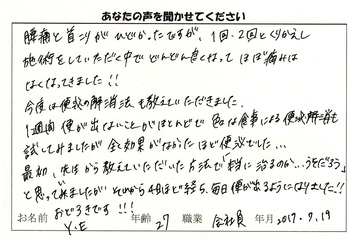 あなたの声を聞かせてください
腰痛と首こりがひどかったですが、1回、2回とくりかえし
施術をしていただく中でどんどん良くなって ほぼ痛みは
なくなってきました!!
今度は便秘の解消法も教えていただきました。
1週間 便が出ないことがほとんどで 色々な食事による便秘解消も
試してみましたが 全く効果がなかったほど便秘でした…
最初、先生から教えていただいた方法で「本当に治るのか…うそだろう」
と思って来ましたが それから4日ほど経ち、毎日便が出るようになりました!!
おどろきです!!!
お名前 Y・E 年齢 27 職業 会社員 年月 2017.9.19